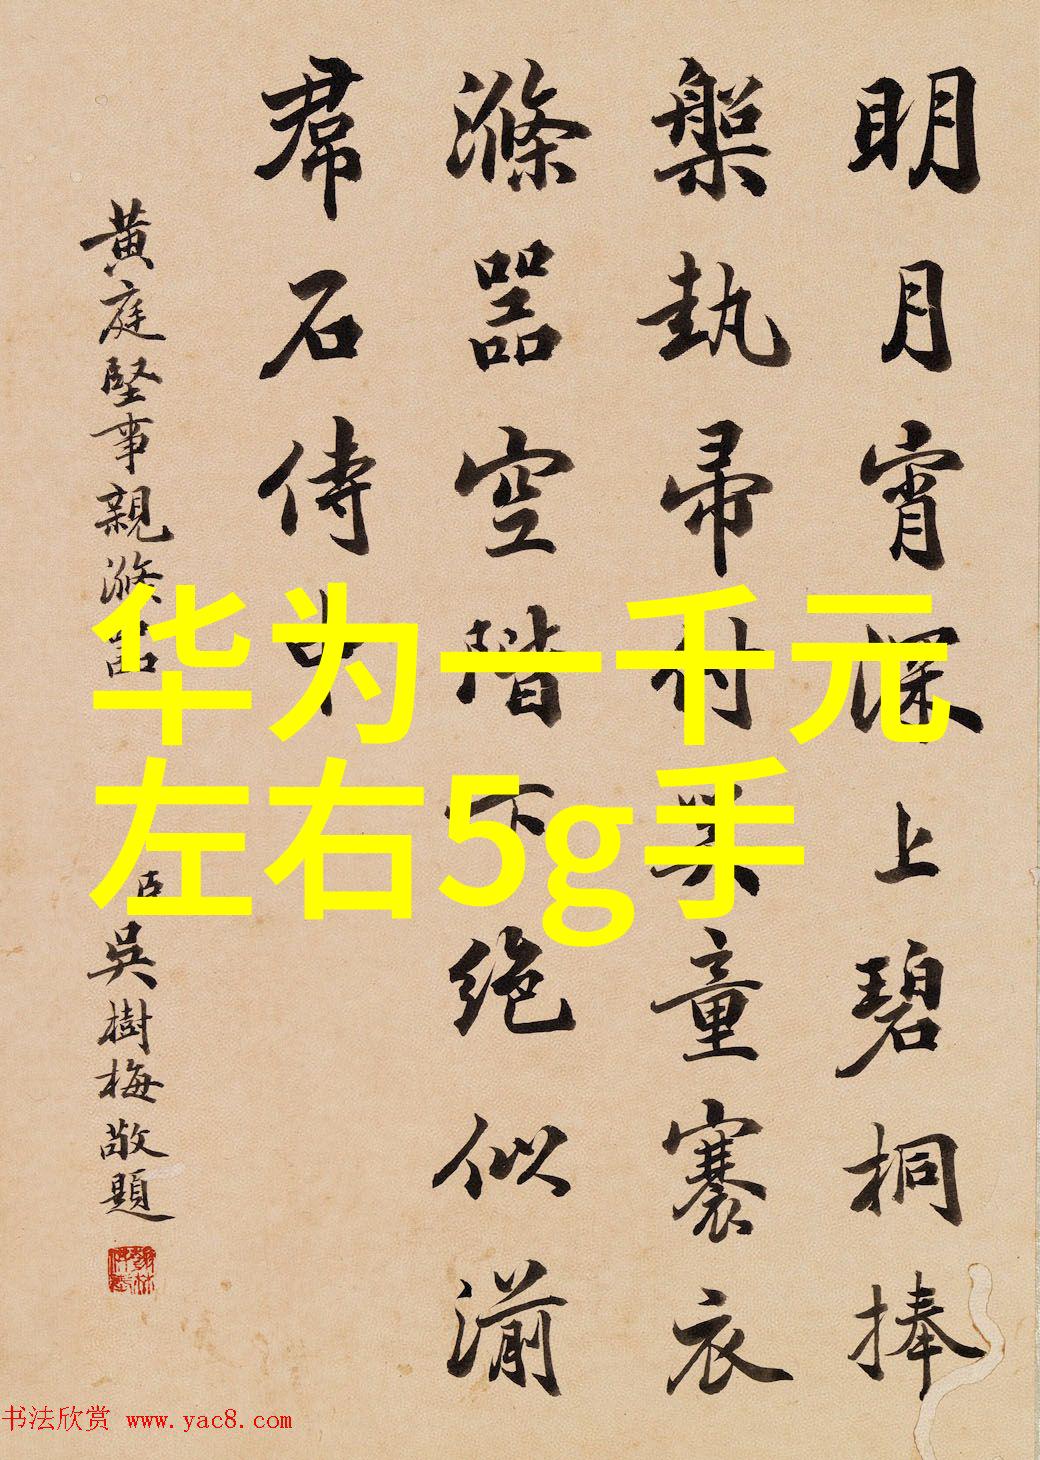 明月宵深上碧桐捧
槃執帚付奚童褰衣
滌器空階下絶似湔
帬石侍中
黃庭堅事親滌器 臣吳樹梅敬題
华为一千元
左右5g手
书法欣赏 www.yac8.com